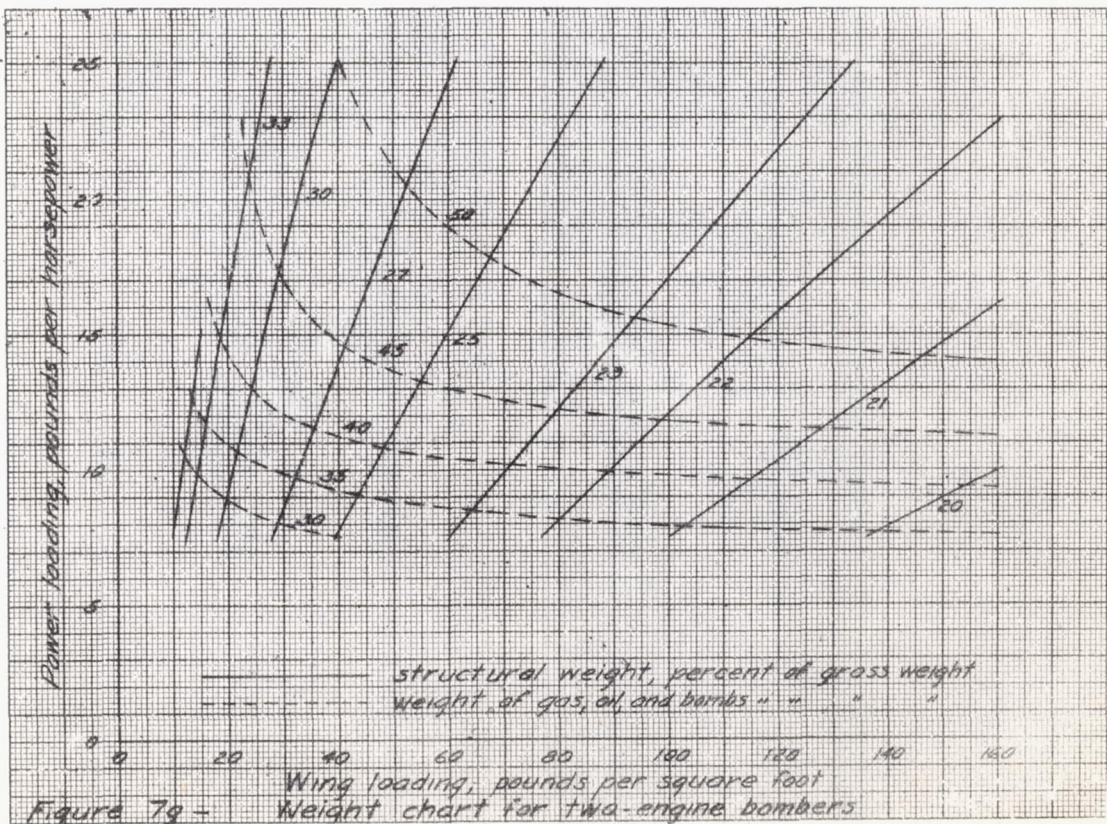 25
20
15
10
5
0
Power loading, pounds per horsepower
33
30
27
25
23
22
21
20
50
45
40
35
30
structural weight, percent of gross weight
weight of gas, oil, and bombs " " " "
0 20 40 60 80 100 120 140 160
Wing loading, pounds per square foot
Figure 7g - Weight chart for two-engine bombers